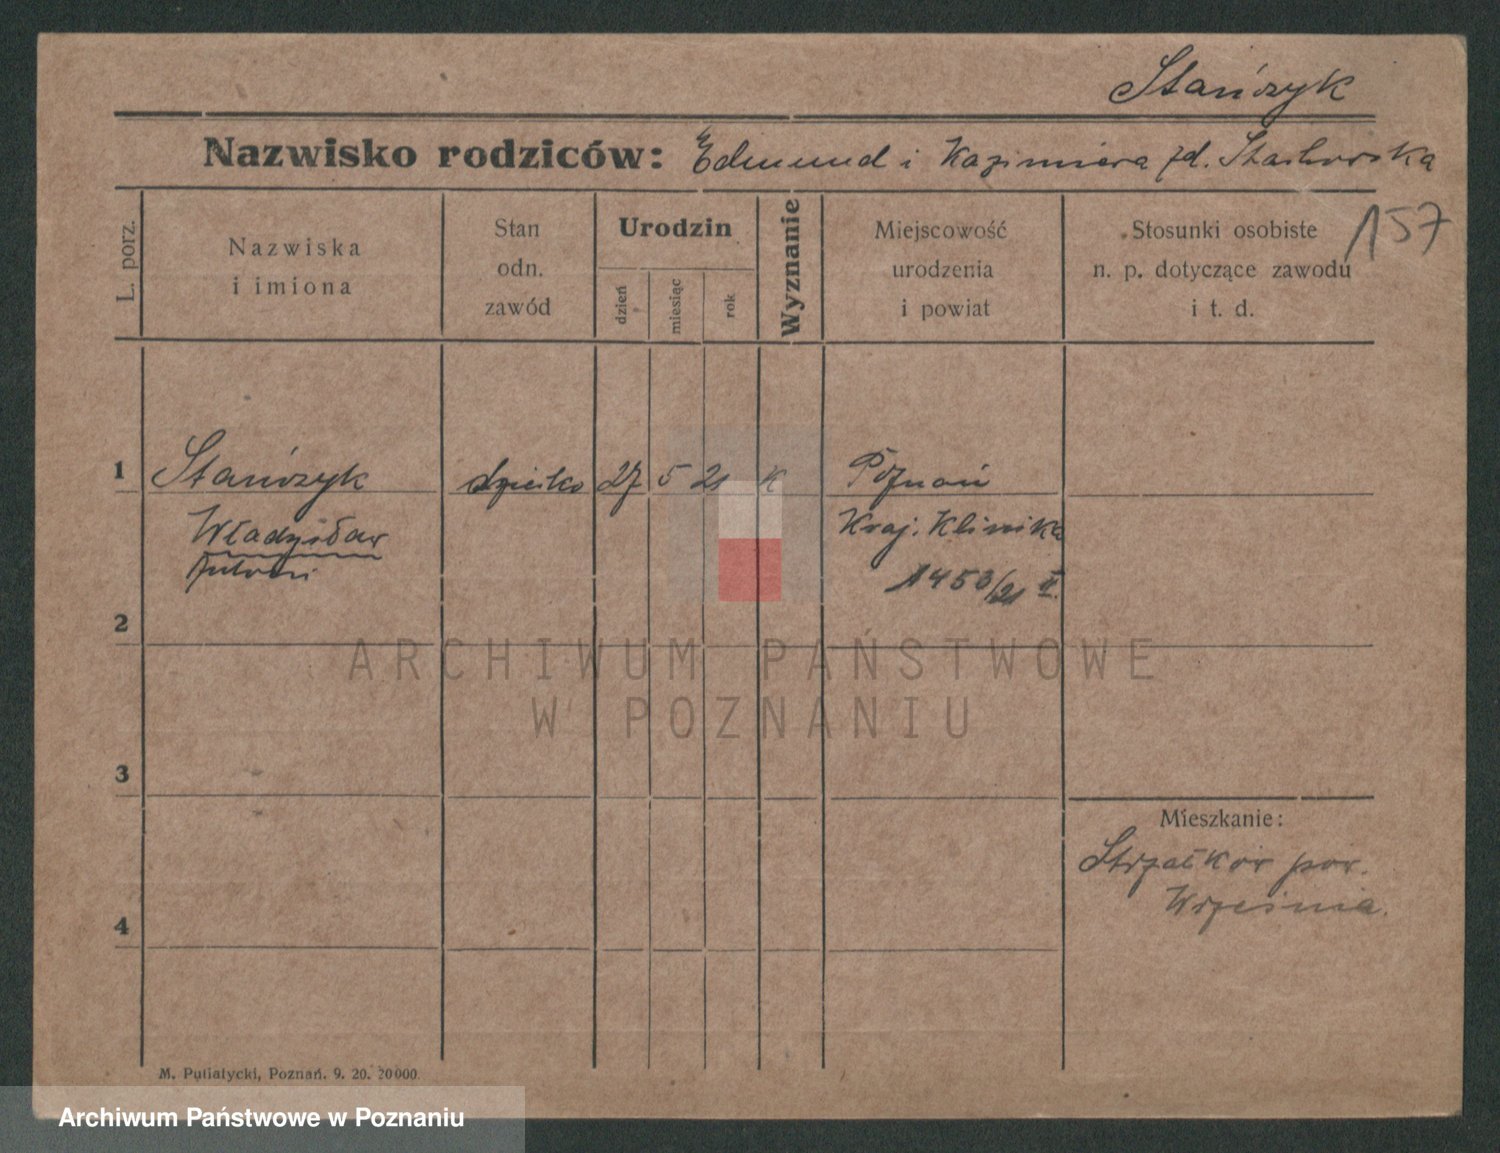 Stańczyk
Nazwisko rodziców: Edmund i Kazimiera zd.
157
L. porz.
Nazwiska
i imiona
Stan
odn.
zawód
Urodzin
dzień
miesiąc
rok
Wyznanie
Miejscowość
urodzenia
i powiat
Stosunki osobiste
n. p. dotyczące zawodu
i t. d.
1 Stańczyk dziecko 27 5 21 K Poznań
Władysław Kraj. Klinika
Antoni
1453/21 II.
2
ARCHIWUM PAŃSTWOWE
W POZNANIU
3
Mieszkanie:
Strzałków pow.
Września.
4
M. Putiatycki, Poznań. 9. 20. 20000.
Archiwum Państwowe w Poznaniu